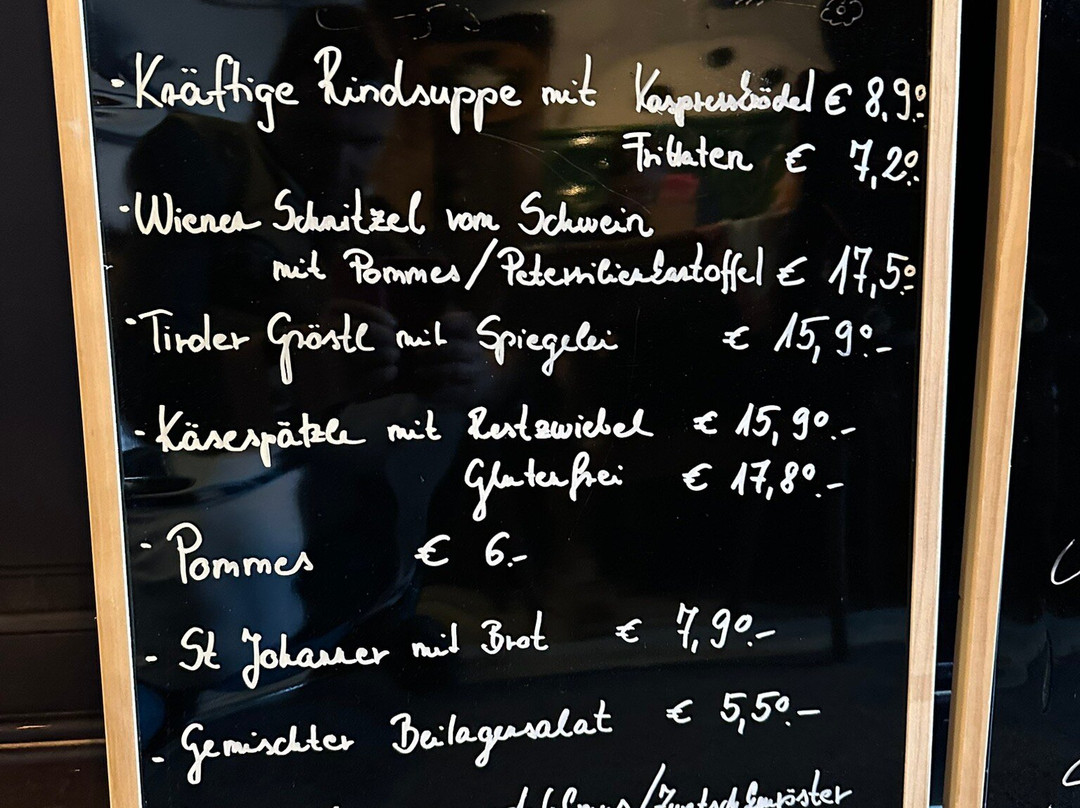 · Kräftige Rindsuppe mit Kaspressknödel € 8,90.
Frittaten € 7,20.
· Wiener Schnitzel vom Schwein
mit Pommes/Petersilienkartoffel € 17,50.-
· Tiroler Gröstl mit Spiegelei € 15,90.-
- Käsespätzle mit Restzwiebel € 15,90.-
Glutenfrei € 17,80.-
- Pommes € 6.-
- St Johanner mit Brot € 7,90.-
- Gemischter Beilagensalat € 5,50.-
/Zwetschkenröster